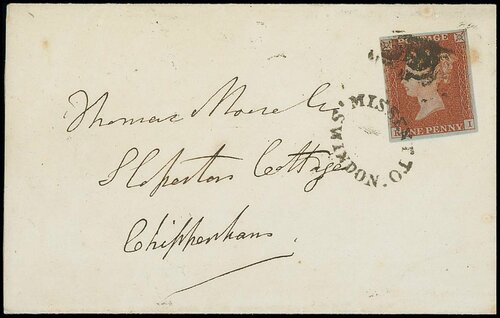 POSTAGE
N I
ONE PENNY
MISSENT TO.
SWINDON.
Thomas Moore Esq
Sloperton Cottage
Chippenham